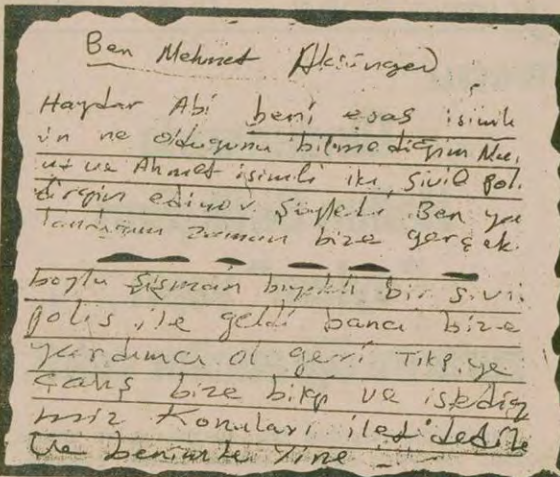 Ben Mehmet Aksünger
Haydar Abi beni esas isimle
in ne olduğunu bilmediğim
ut ve Ahmet isimli iki sivil poli
ediyor söyledi Ben ya
zaman bize gerçek
boylu şişman bıyıklı bir sivi
polis ile geldi bana bize
yardımcı ol geri TİKP, ye
çalış bize bilgi ve istediğ
imiz konuları ilet dedile
ve benimle yine